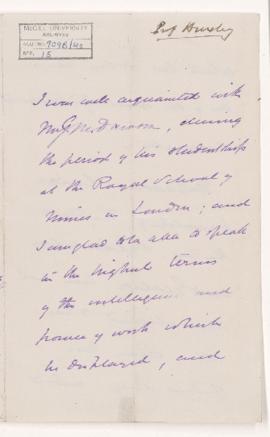 McGILL UNIVERSITY
ARCHIVES
ACC. NO.
REF. 15
Prof Huxley
I was well acquainted with
Mr G. M. Dawson, during
the period of his studentship
at the Royal School of
Mines in London; and
I am glad to be able to speak
in the highest terms
of the intelligence and
power of work which
he displayed, and